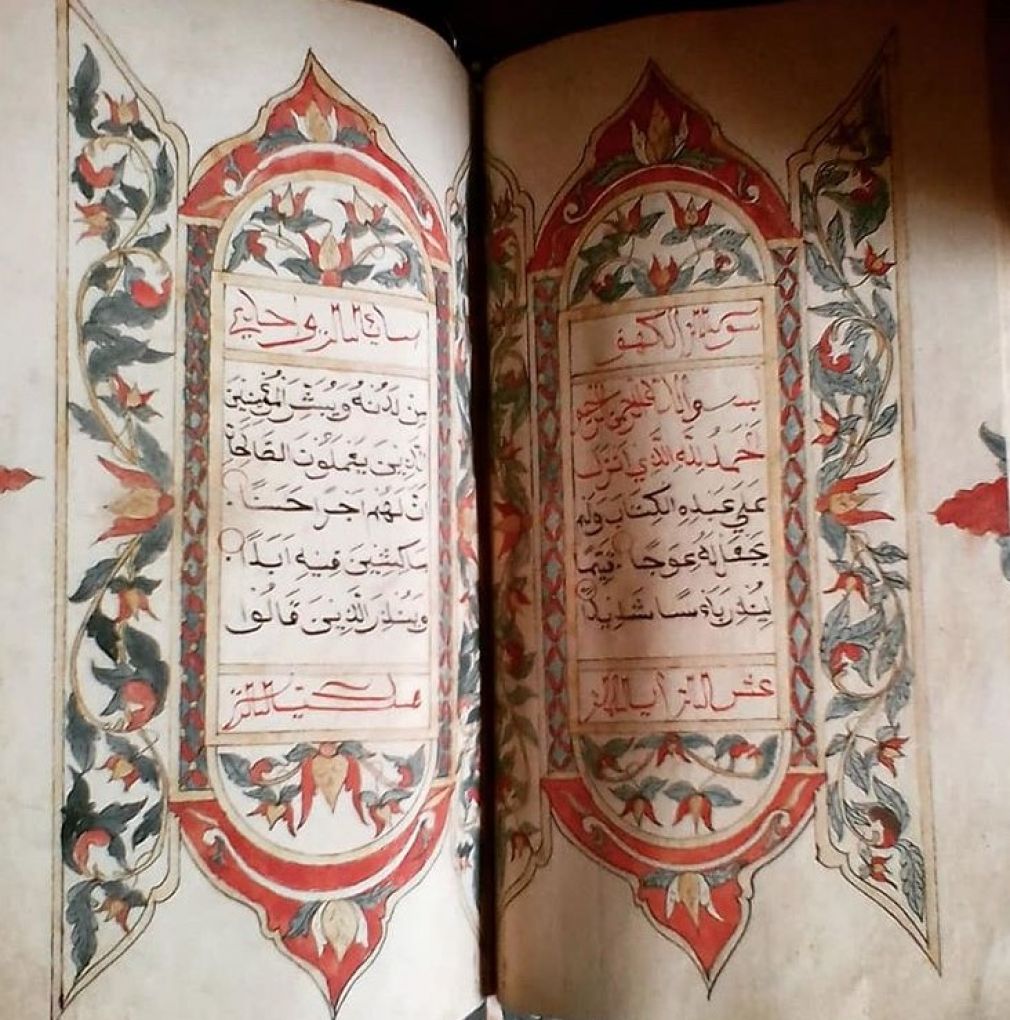 سورة الكهف
بسم الله الرحمن الرحيم
اَلْحَمْدُ لِلّٰهِ الَّذِي اَنْزَلَ
عَلَي عَبْدِهِ الْكِتَابَ وَلَمْ
يَجْعَلْ لَهُ عِوَجًا قَيِّمًا
لِيُنْذِرَ بَاءْسًا شَدِيْدًا
مِنْ لَدُنْهُ وَيُبَشِّرَ الْمُؤْمِنِيْنَ
الَّذِيْنَ يَعْمَلُوْنَ الصَّالِحَاتِ
اَنَّ لَهُمْ اَجْرًا حَسَنًا
مَاكِثِيْنَ فِيْهِ اَبَدًا
وَيُنْذِرَ الَّذِيْنَ قَالُوْا